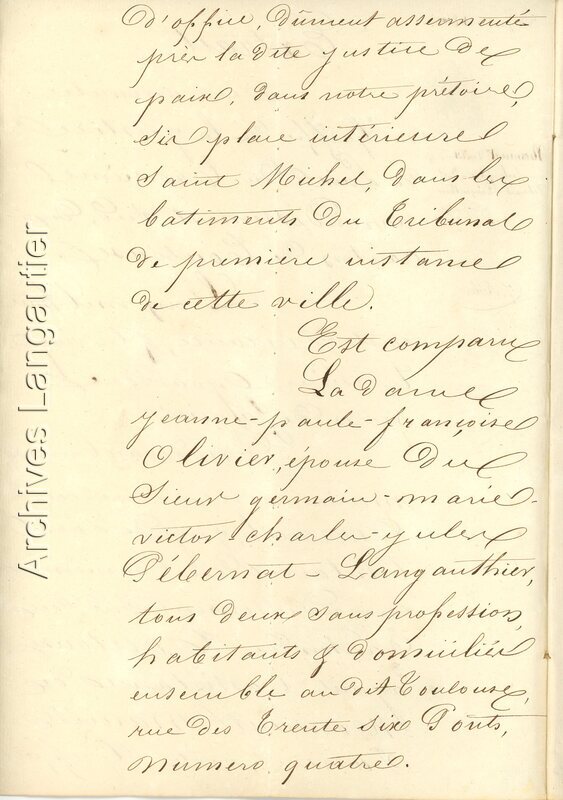 d'office, dûment assermenté
près la dite justice de
paix, dans notre prétoire,
sis place intérieure
Saint Michel, dans les
batiments du Tribunal
de première instance
de cette ville.
Est comparue
La dame
jeanne-paule-françoise
Olivier, épouse du
sieur germain-marie-
victor-charles-jules
Pébernat-Langauthier,
tous deux sans profession,
habitants & domiciliés
ensemble au dit Toulouse,
rue des Trente six Ponts,
numero quatre.
Archives Langautier